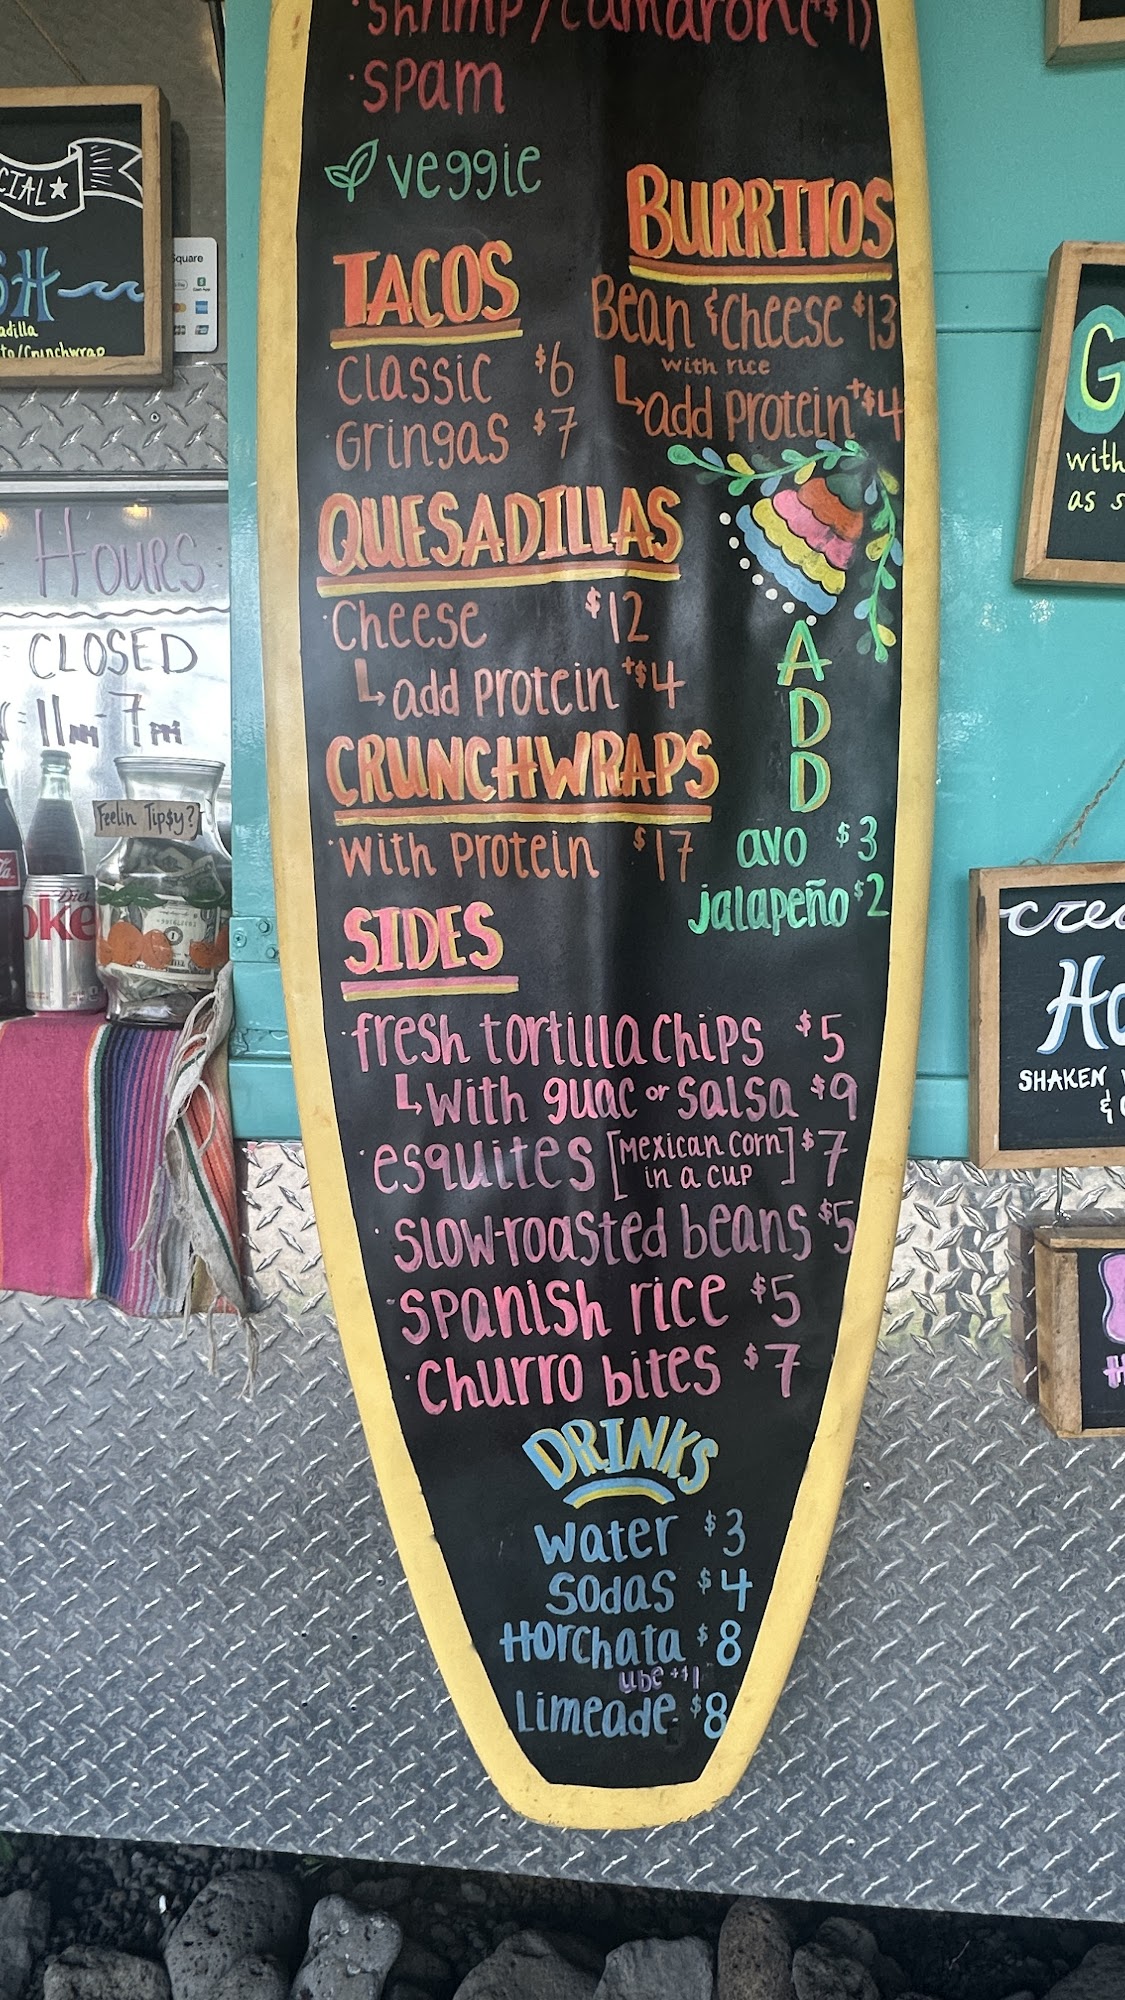 ·shrimp/camaron(+$1)
·spam
veggie
TACOS
·classic $6
·Gringas $7
BURRITOS
Bean & cheese $13
with rice
add protein +$4
QUESADILLAS
·cheese $12
add protein +$4
CRUNCHWRAPS
·with protein $17
ADD
avo $3
jalapeño $2
SIDES
·fresh tortilla chips $5
with guac or salsa $9
·esquites [Mexican corn in a cup] $7
·slow-roasted beans $5
·spanish rice $5
·churro bites $7
DRINKS
water $3
sodas $4
Horchata $8
ube +$1
Limeade $8
Square
Hours:
CLOSED
11AM-7PM
Feelin Tip$y?
Diet
SHAKEN
with
as